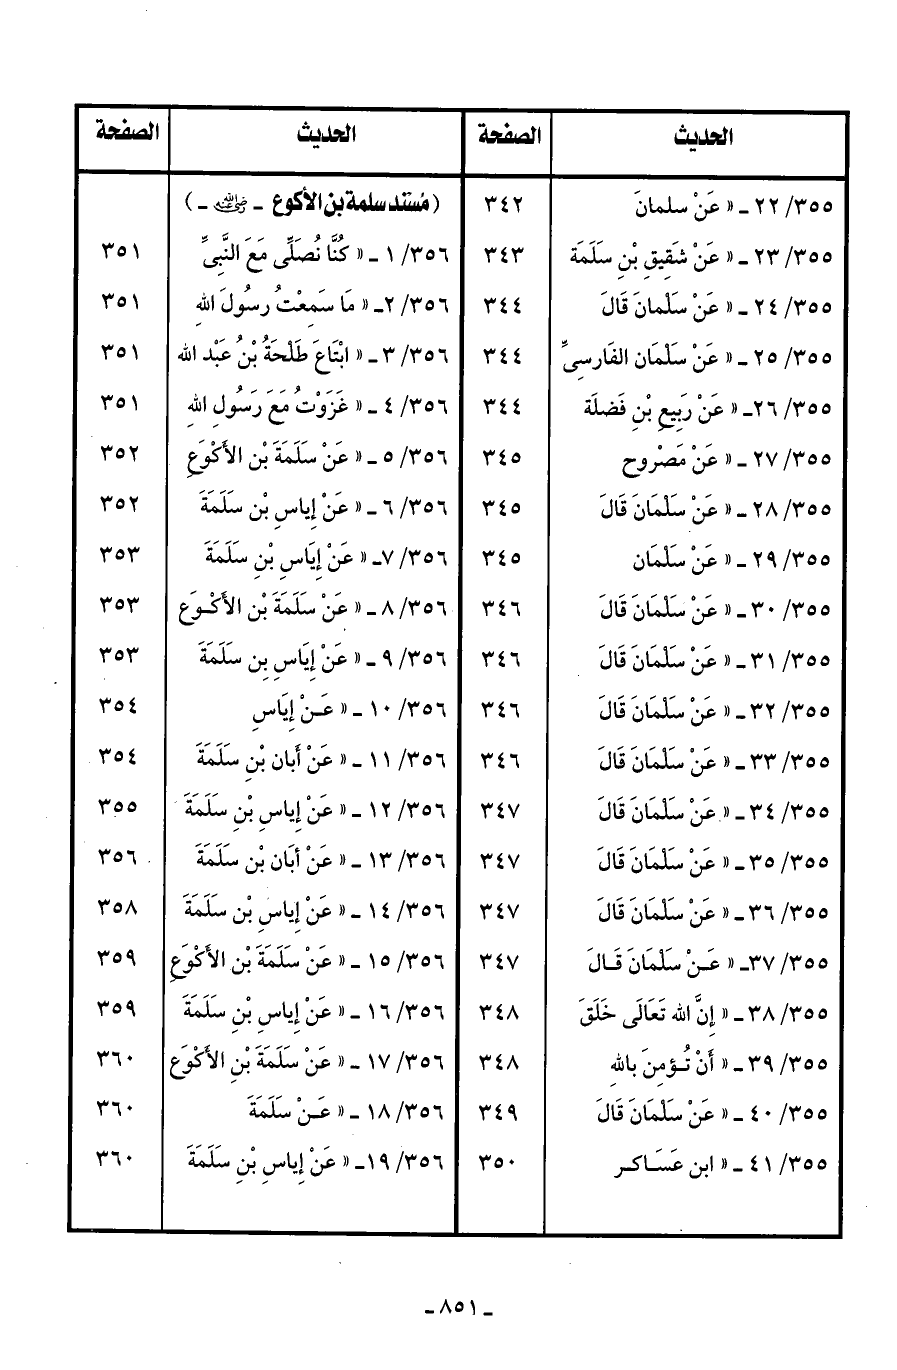 الحديث الصفحة
٢٢/٣٥٥ ـ « عَنْ سلمانَ ٣٤٢
٢٣/٣٥٥ ـ « عَنْ شَقِيقِ بْنِ سَلَمَة ٣٤٣
٢٤/٣٥٥ ـ « عَنْ سَلْمانَ قَالَ ٣٤٤
٢٥/٣٥٥ ـ « عَنْ سَلْمَان الفَارسِىِّ ٣٤٤
٢٦/٣٥٥ـ « عَنْ رَبِيع بْنِ فَضلَة ٣٤٤
٢٧/٣٥٥ ـ « عَنْ مَصْروح ٣٤٥
٢٨/٣٥٥ ـ « عَنْ سَلْمَانَ قَالَ ٣٤٥
٢٩/٣٥٥ ـ « عَنْ سَلْمَان ٣٤٥
٣٠/٣٥٥ ـ « عَنْ سَلْمَانَ قَالَ ٣٤٦
٣١/٣٥٥ ـ « عَنْ سَلْمَانَ قَالَ ٣٤٦
٣٢/٣٥٥ ـ « عَنْ سَلْمَانَ قَالَ ٣٤٦
٣٣/٣٥٥ ـ « عَنْ سَلْمَانَ قَالَ ٣٤٦
٣٤/٣٥٥ ـ « عَنْ سَلْمَانَ قَالَ ٣٤٧
٣٥/٣٥٥ ـ « عَنْ سَلْمَانَ قَالَ ٣٤٧
٣٦/٣٥٥ ـ « عَنْ سَلْمَانَ قَالَ ٣٤٧
٣٧/٣٥٥ـ « عَـنْ سَلْمَانَ قَـالَ ٣٤٧
٣٨/٣٥٥ ـ « إِنَّ الله تَعَالَى خَلَقَ ٣٤٨
٣٩/٣٥٥ ـ « أَنْ تُـؤمِنَ بالله ٣٤٨
٤٠/٣٥٥ ـ « عَنْ سَلْمَانَ قَالَ ٣٤٩
٤١/٣٥٥ ـ « ابن عَسَـاكـر ٣٥٠
الحديث الصفحة
( مُسْنَد سلمة بن الأكوع ـ رضي الله عنه ـ )
١/٣٥٦ ـ « كُنَّا نُصَلِّى مَعَ النَّبِىِّ ٣٥١
٢/٣٥٦ـ « مَا سَمِعْتُ رسُولَ اللهِ ٣٥١
٣/٣٥٦ ـ « ابْتَاعَ طَلْحَةُ بْنُ عَبْد الله ٣٥١
٤/٣٥٦ ـ « غَزَوْتُ مَعَ رَسُولِ اللهِ ٣٥١
٥/٣٥٦ ـ « عَنْ سَلَمَةَ بْن الأَكْوَعِ ٣٥٢
٦/٣٥٦ ـ « عَنْ إياسِ بْن سَلَمَةَ ٣٥٢
٧/٣٥٦ـ « عَنْ إِيَاسِ بْنِ سَلَمَةَ ٣٥٣
٨/٣٥٦ ـ « عَنْ سَلَمَةَ بْن الأَكْـوَع ٣٥٣
٩/٣٥٦ ـ « عَنْ إِيَاسِ بن سَلَمَةَ ٣٥٣
١٠/٣٥٦ ـ « عَـنْ إِيَاسِ ٣٥٤
١١/٣٥٦ ـ « عَنْ أَبان بْن سَلَمَةَ ٣٥٤
١٢/٣٥٦ ـ « عَنْ إِياسِ بْنِ سَلَمَةَ ٣٥٥
١٣/٣٥٦ ـ « عَنْ أَبَان بْن سَلَمَةَ ٣٥٦
١٤/٣٥٦ ـ « عَنْ إِياسِ بْن سَلَمَةَ ٣٥٨
١٥/٣٥٦ ـ « عَنْ سَلَمَةَ بْن الأَكْوَعِ ٣٥٩
١٦/٣٥٦ ـ « عَنْ إِياسِ بْنِ سَلَمَةَ ٣٥٩
١٧/٣٥٦ ـ « عَنْ سَلَمَةَ بْنِ الأَكْوَع ٣٦٠
١٨/٣٥٦ ـ « عَـنْ سَلَمَةَ ٣٦٠
١٩/٣٥٦ـ « عَنْ إِياسِ بْنِ سَلَمَةَ ٣٦٠
ـ ٨٥١ ـ